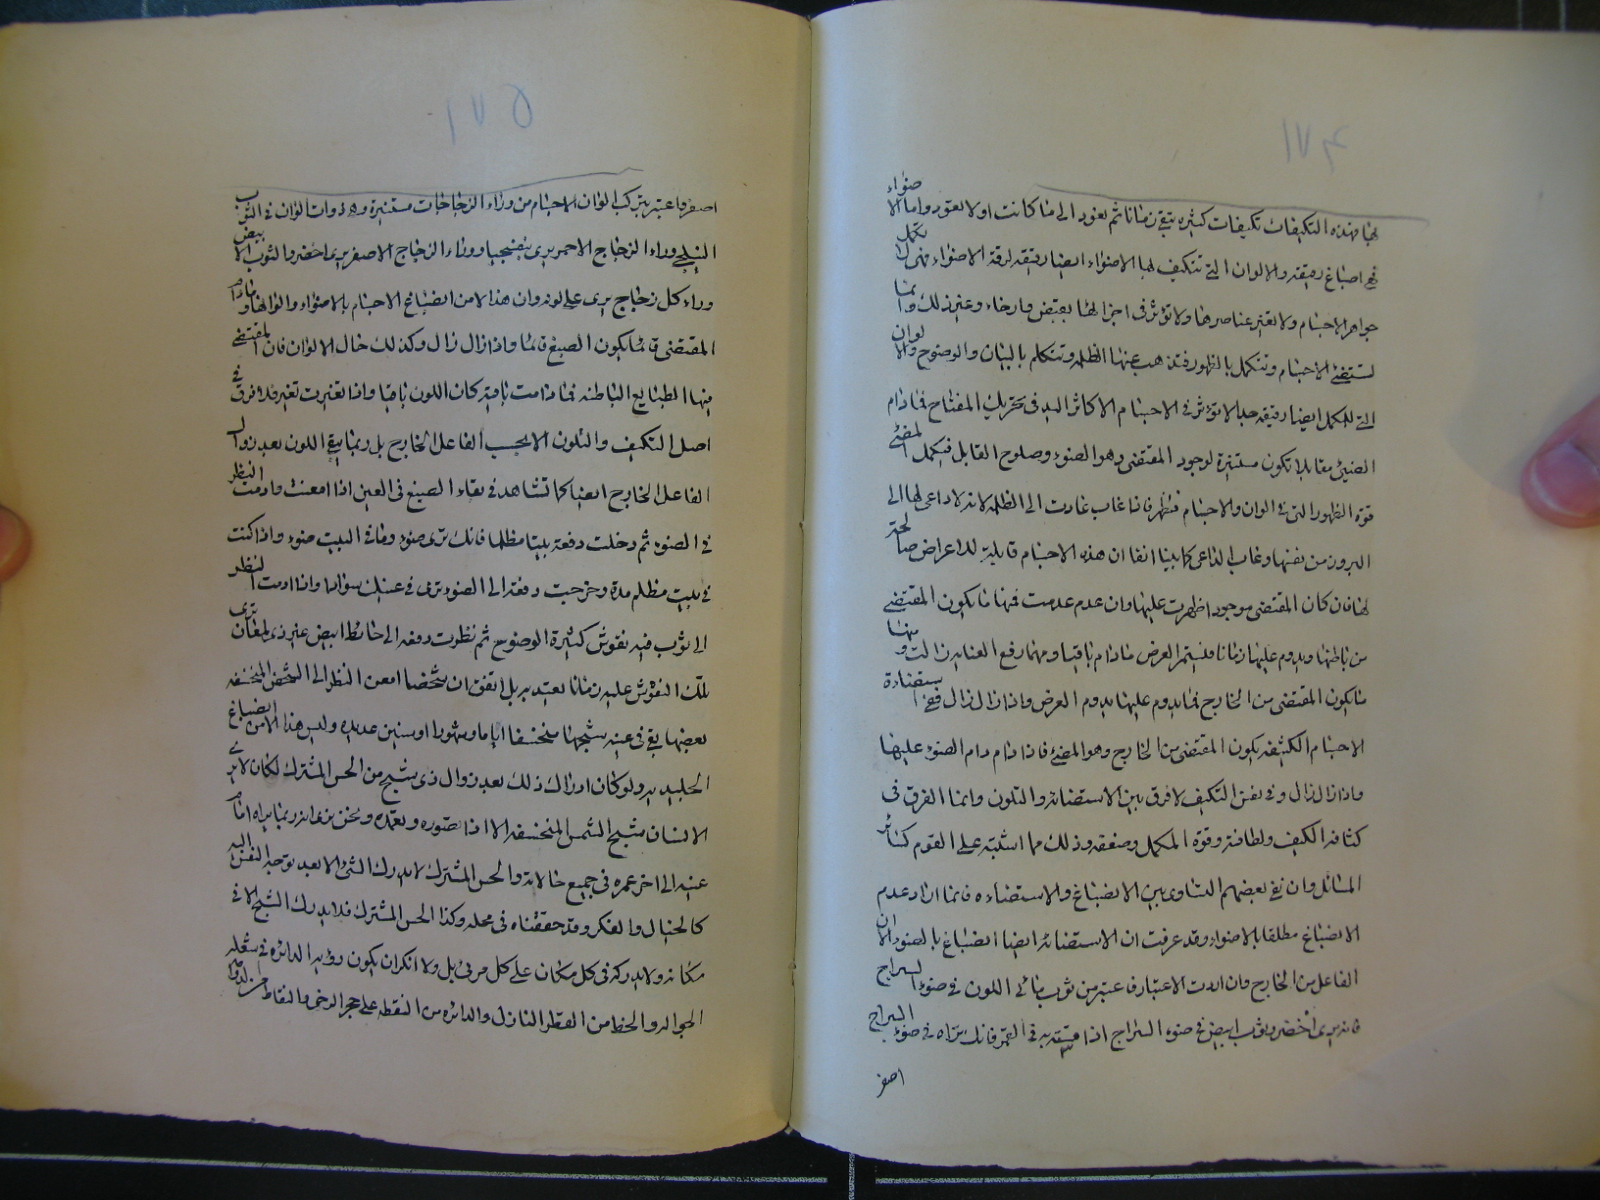 لها فهذه التكيفات تكيفات كثيره يبقى زمانا ثم يعود الى ما كانت اولا يعود واما الاضواء
فهى اصباغ رقيقه والالوان التى تتكيف لها الاضواء ايضا رقيقه لرقة الاضواء فهى لا تكمل
جواهر الاجسام ولا تغير عناصرها ولا تؤثر فى اجزائها بقبض وارخاء وغير ذلك وانما
تستضئ الاجسام وتتكمل بالظهور فتذهب عنها الظلمه وتتكلم بالبيان والوضوح والالوان
التى للمكمل ايضا رقيقه جدا لا تؤثر فى الاجسام الا كاثر اليد فى تحريك المفتاح فمادام المضئ
المضيئ مقابلا تكون مستنيرة لوجود المقتضى وهو الضوء وصلوح القابل فيكمل
قوة الظهور التى فى الوان والاجسام فتظهر فاذا غاب عادت الى الظلمه لانه لا داعى لها الى
البروز من نفسها وغاب الداعى كما بينا انفا ان هذه الاجسام قابلية للاعراض صالحة
لها فان كان المقتضى موجودا ظهرت عليها وان عدم عدمت فمنها ما يكون المقتضى
من باطنها ويدوم عليها زمانا فيستمر العرض مادام باقيا ومهما رفع العناصر زالت ومنها
ما يكون المقتضى من الخارج فمايدوم عليها يدوم العرض واذا زال زال ففى استضاءة
الاجسام الكثيفه يكون المقتضى من الخارج وهو المضئ فاذا دام دام الضوء عليها
واذا زال زال وفى نفس التكيف لا فرق بين الاستضائه والتلون وانما الفرق فى
كثافه الكيف ولطافته وقوة المكمل وضعفه وذلك مما اشتبه على القوم كسائر
المسائل وان نفى بعضهم التساوى بين الانصباغ والاستضاءه فانما اراد عدم
الانصباغ مطلقا بالاضواء وقد عرفت ان الاستضائه ايضا انصباغ بالضوء الا ان
الفاعل من الخارج وان اردت الاعتبار فاعتبر من ثوب مائى اللون فى ضوء السراج
فانه يرى اخضر وثوب ابيض فى ضوء السراج اذا قسته به فى القمر فانك تراه فى ضوء السراج
اصفر
اصفر فاعتبر بتركب الوان الاجسام من وراء الزجاجات مستنيرة وهذوات الوان فى الثوب
النيلى وراء الزجاج الاحمر يرى بنفسجيا ووراء الزجاج الاصفر يرى اخضر والثوب الابيض
وراء كل زجاج يرى على لونه وان هذا الا من انصباغ الاجسام بالاضواء والوانها مادام
المقتضى قائما يكون الصبغ قائما واذا زال زال وكذلك حال الالوان فان المقتضى
منها الطبايع الباطنه فمادامت باقية كان اللون باقيا واذا تغيرت تغير فلا فرق فى
اصل التكيف والتلون الا بحسب الفاعل الخارج بل ربما يبقى اللون بعد زوال
الفاعل الخارج ايضا كما تشاهد فى بقاء الصبغ فى العين اذا امعنت وادمت النظر
فى الضوء ثم دخلت دفعة بيتا مظلما فانك ترى ضوء وما فى البيت ضوء واذا كنت
فى بيت مظلم مدة وخرجت دفعة الى الضوء ترى فى عينك سوادا واذا ادمت النظر
الى ثوب فيه نقوش كثيرة الوضوح ثم نظرت دفعه الى حائط ابيض غير ذى لمعان ترى
تلك النقوش عليه زمانا يعتد به بل اتفق ان شخصا امعن النظر الى الشمس المنخسفه
بعضها بقى فى عينه شبحها منخسفا اياما وشهورا او سنين عديده وليس هذا الا من انصباغ
الجليديه ولو كان ادراك ذلك بعد زوال ذى شبح من الحس المشترك لكان لا يرى
الانسان شبح الشمس المنخسفه الا اذا تصوره وتعمده ونحن نراه انه ربما يراه امام
عينه الى اخر عمره فى جميع حالاته والحس المشترك لا يدرك الشئ الا بعد توجه النفس اليه
كالخيال والفكر وقد حققناه فى محله وكذا الحس المشترك فلا يدرك الشبح الا فى
مكانه ولا يدركه فى كل مكان على كل مرئى بل ولا انكر ان يكون رؤيه الدائره فى شعله
الجواله والخط من القطر النازل والدائره من النقطه على حجر الرحى والنقاط